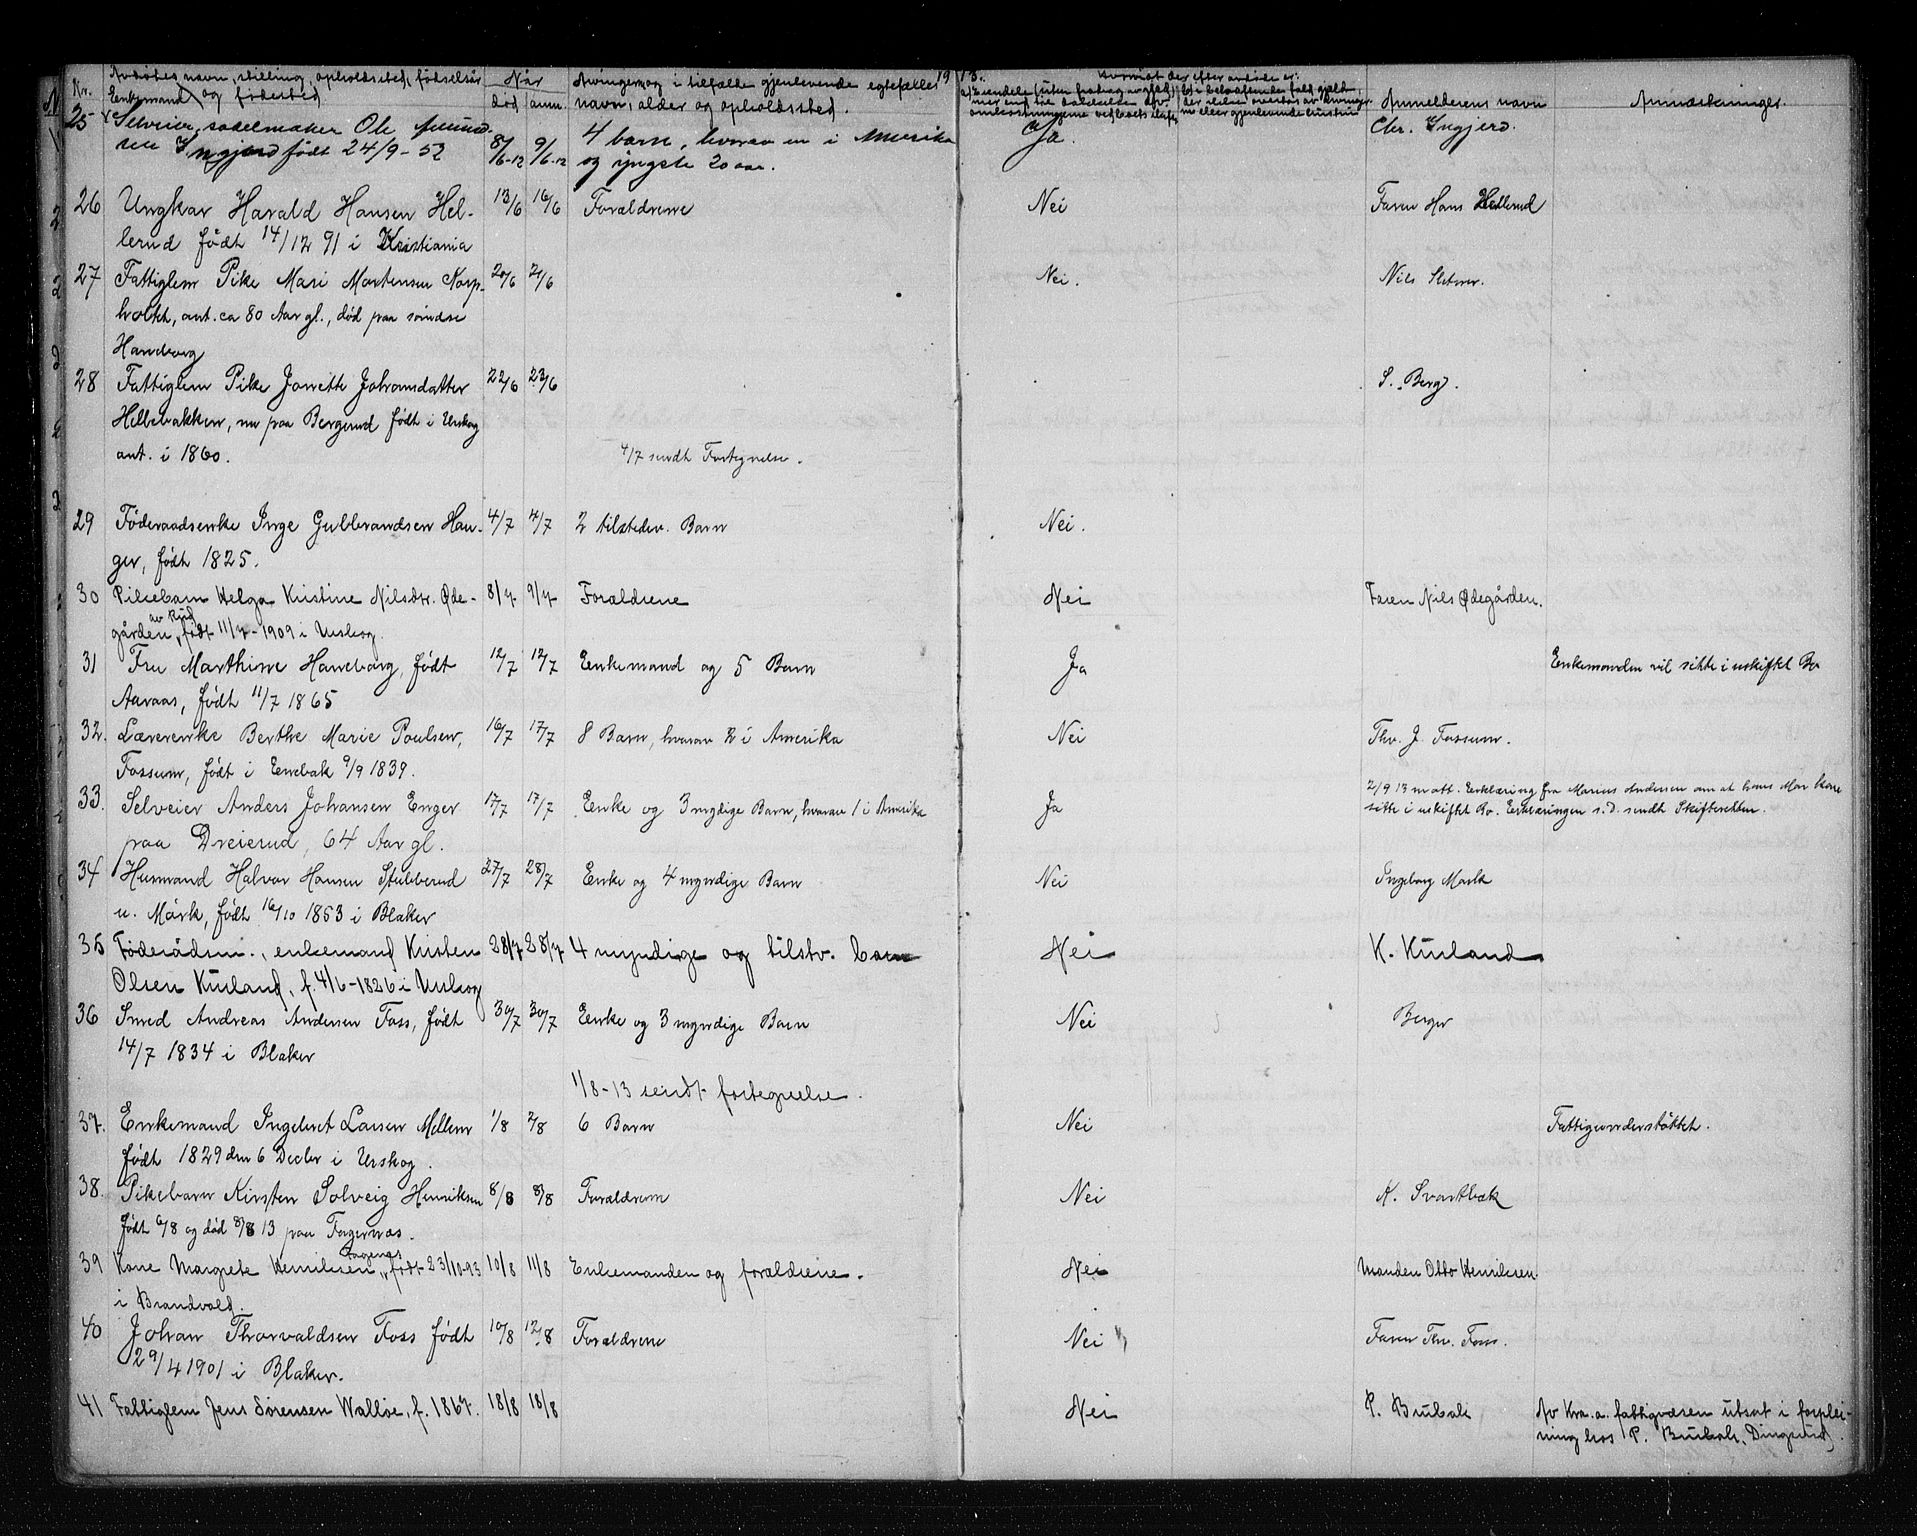 Nr. Avdödes navn, stilling, opholdssted, födselsår og födested Når död anm. Arvinger og i tilfælde gjenlevende egtefælles navn, alder og opholdssted. 1913.
Hvorvidt der efter avdöde er: Anmelderens navn Anmerkninger.
25 Enkemand Selveier, sadelmaker Ole Amund- 8/6-12 9/6-12 4 barn, hvorav en i Amerika Ja. Chr. Ingjerd.
sen Ingjerd född 24/9-52 og yngste 20 aar.
26 Ungkar Harald Hansen Hel- 13/6 16/6 Forældrene Nei Faren Hans Hellerud
lerud född 14/12 91 i Kristiania
27 Fattiglem Pike Mari Mortensen Korp- 20/6 21/6 Nei. Nils
holtet, ant. ca 80 Aar gl., död paa söndre
Haneborg
28 Fattiglem Pike Janette Johansdatter 22/6 23/6 S. Berg.
Hellebakken, nu paa Bergerud född i Urskog
ant. i 1860. 4/7 sendt Fortegnelse.
29 Föderaadsenke Inge Gulbrandsen Hau- 4/7 4/7 2 tilstedev. Barn Nei.
ger, född 1825.
30 Pikebarn Helga Kristine Nilsdtr. Øde- 8/7 9/7 Forældrene Nei Faren Nils Ødegården.
gården av Rud, född 11/7-1909 i Urskog.
31 Fru Marthine Haneborg, född 12/7 12/7 Enkemand og 5 Barn Ja Enkemanden vil sitte i uskiftet Bo
Aaraas, född 11/7 1865
32. Lærerenke Berthe Marie Poulsen, 16/7 17/7 8 Barn, hvorav 2 i Amerika Nei Thv. J. Fossum.
Fossum, född i Enebak 9/9 1839.
33. Selveier Anders Johansen Enger 17/7 17/7 Enke og 3 myndige Barn, hvorav 1 i Amerika Ja 2/9 13 mott. Erklæring fra Marius Andersen om at hans Mor kan
paa Dreierud, 64 Aar gl. sitte i uskiftet Bo. Erklæringen s.D. sendt Skifteretten.
34 Husmand Halvor Hansen Stubberud 27/7 28/7 Enke og 4 myndige Barn Nei Ingeborg Mork
u. Mörk, född 16/10 1853 i Blaker
35 Föderådsm., enkemand Kristen 28/7 28/7 4 myndige og tilstv. barn Nei K. Kinland
Olsen Kinland, f. 4/6-1826 i Urskog
36 Smed Andreas Andersen Foss, född 30/7 30/7 Enke og 3 myndige Barn Nei Berger
14/7 1834 i Blaker
1/8-13 sendt fortegnelse.
37. Enkemand Ingebret Larsen Mellem 1/8 2/8 6 Barn Nei Fattigunderstöttet.
född 1829 den 6 Decbr i Urskog.
38. Pikebarn Kirsten Solveig Henriksen 8/8 8/8 Forældrene Nei K. Svartbæk
född 6/8 og död 8/8 13 paa Fagernæs.
39 Kone Margrete Henriksen Fagernes, född 23/10-93 10/8 11/8 Enkemanden og forældrene. Nei Manden Otto Henriksen.
i Brandvold.
40 Johan Thorvaldsen Foss född 10/8 12/8 Forældrene Nei Faren Thv. Foss.
29/4 1901 i Blaker.
41 Fattiglem Jens Sörensen Walløe, f. 1867. 18/8 18/8 Nei P. Brubak Av Kra.a. fattigvæsen utsat i forplei-
ning hos P. Brubak, Dingsrud.